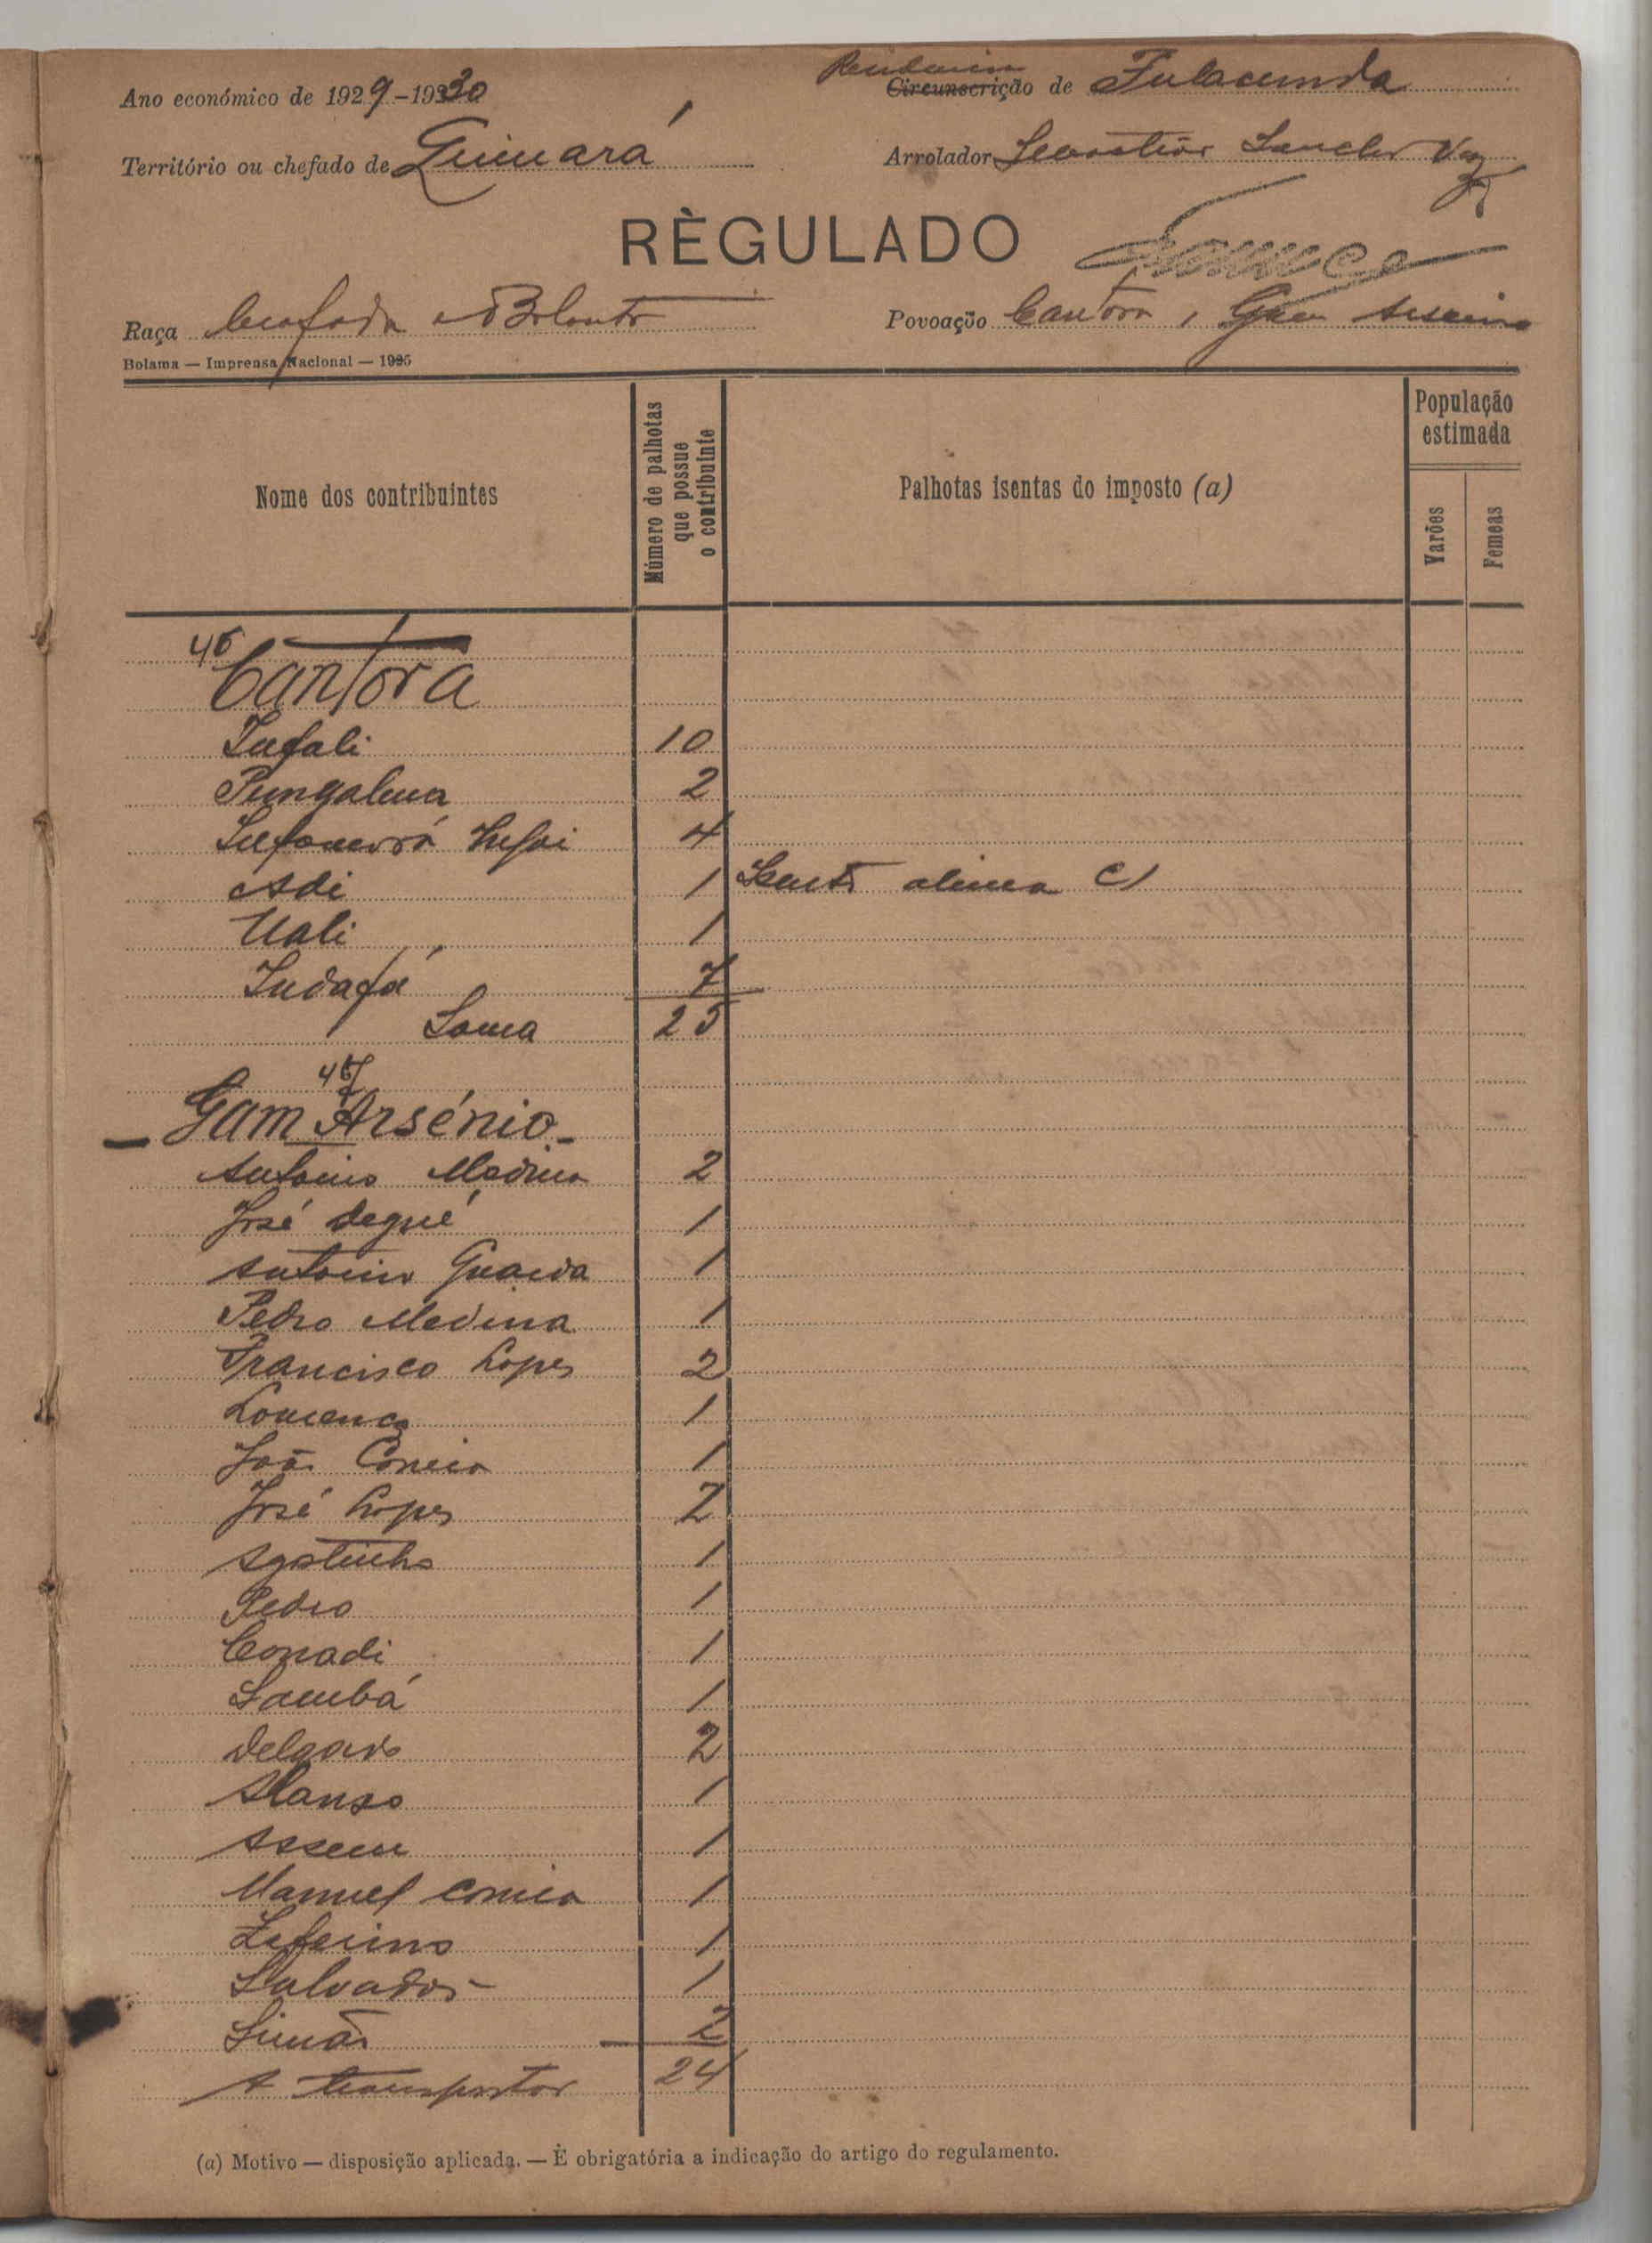 Ano económico de 1929-1930
Residencia
Circunscrição de Fulacunda
Território ou chefado de Quinará
Arrolador Sebastião Sanches Vaz
RÈGULADO
Raça Beafada e Balanta
Povoação Cantora, Gam Arsénio
Bolama — Imprensa Nacional —
Nome dos contribuintes
Número de palhotas que possue o contribuinte
Palhotas isentas do imposto (a)
População estimada
Varões
Femeas
Cantora
10
2
4
Adi 1 alinea C)
Uali 1
Indafá 7
Soma 25
Gam Arsénio
Antonio Medina 2
José Degué 1
Antonio 1
Pedro Medina 1
Francisco Lopes 2
Lourenço 1
João Correia 1
José Lopes 2
Agostinho 1
Pedro 1
Conadi 1
Sambá 1
Delgado 2
1
1
Manuel Correia 1
Zeferino 1
Salvador 1
Simão 2
A transportar 24
(a) Motivo — disposição aplicada. — È obrigatória a indicação do artigo do regulamento.